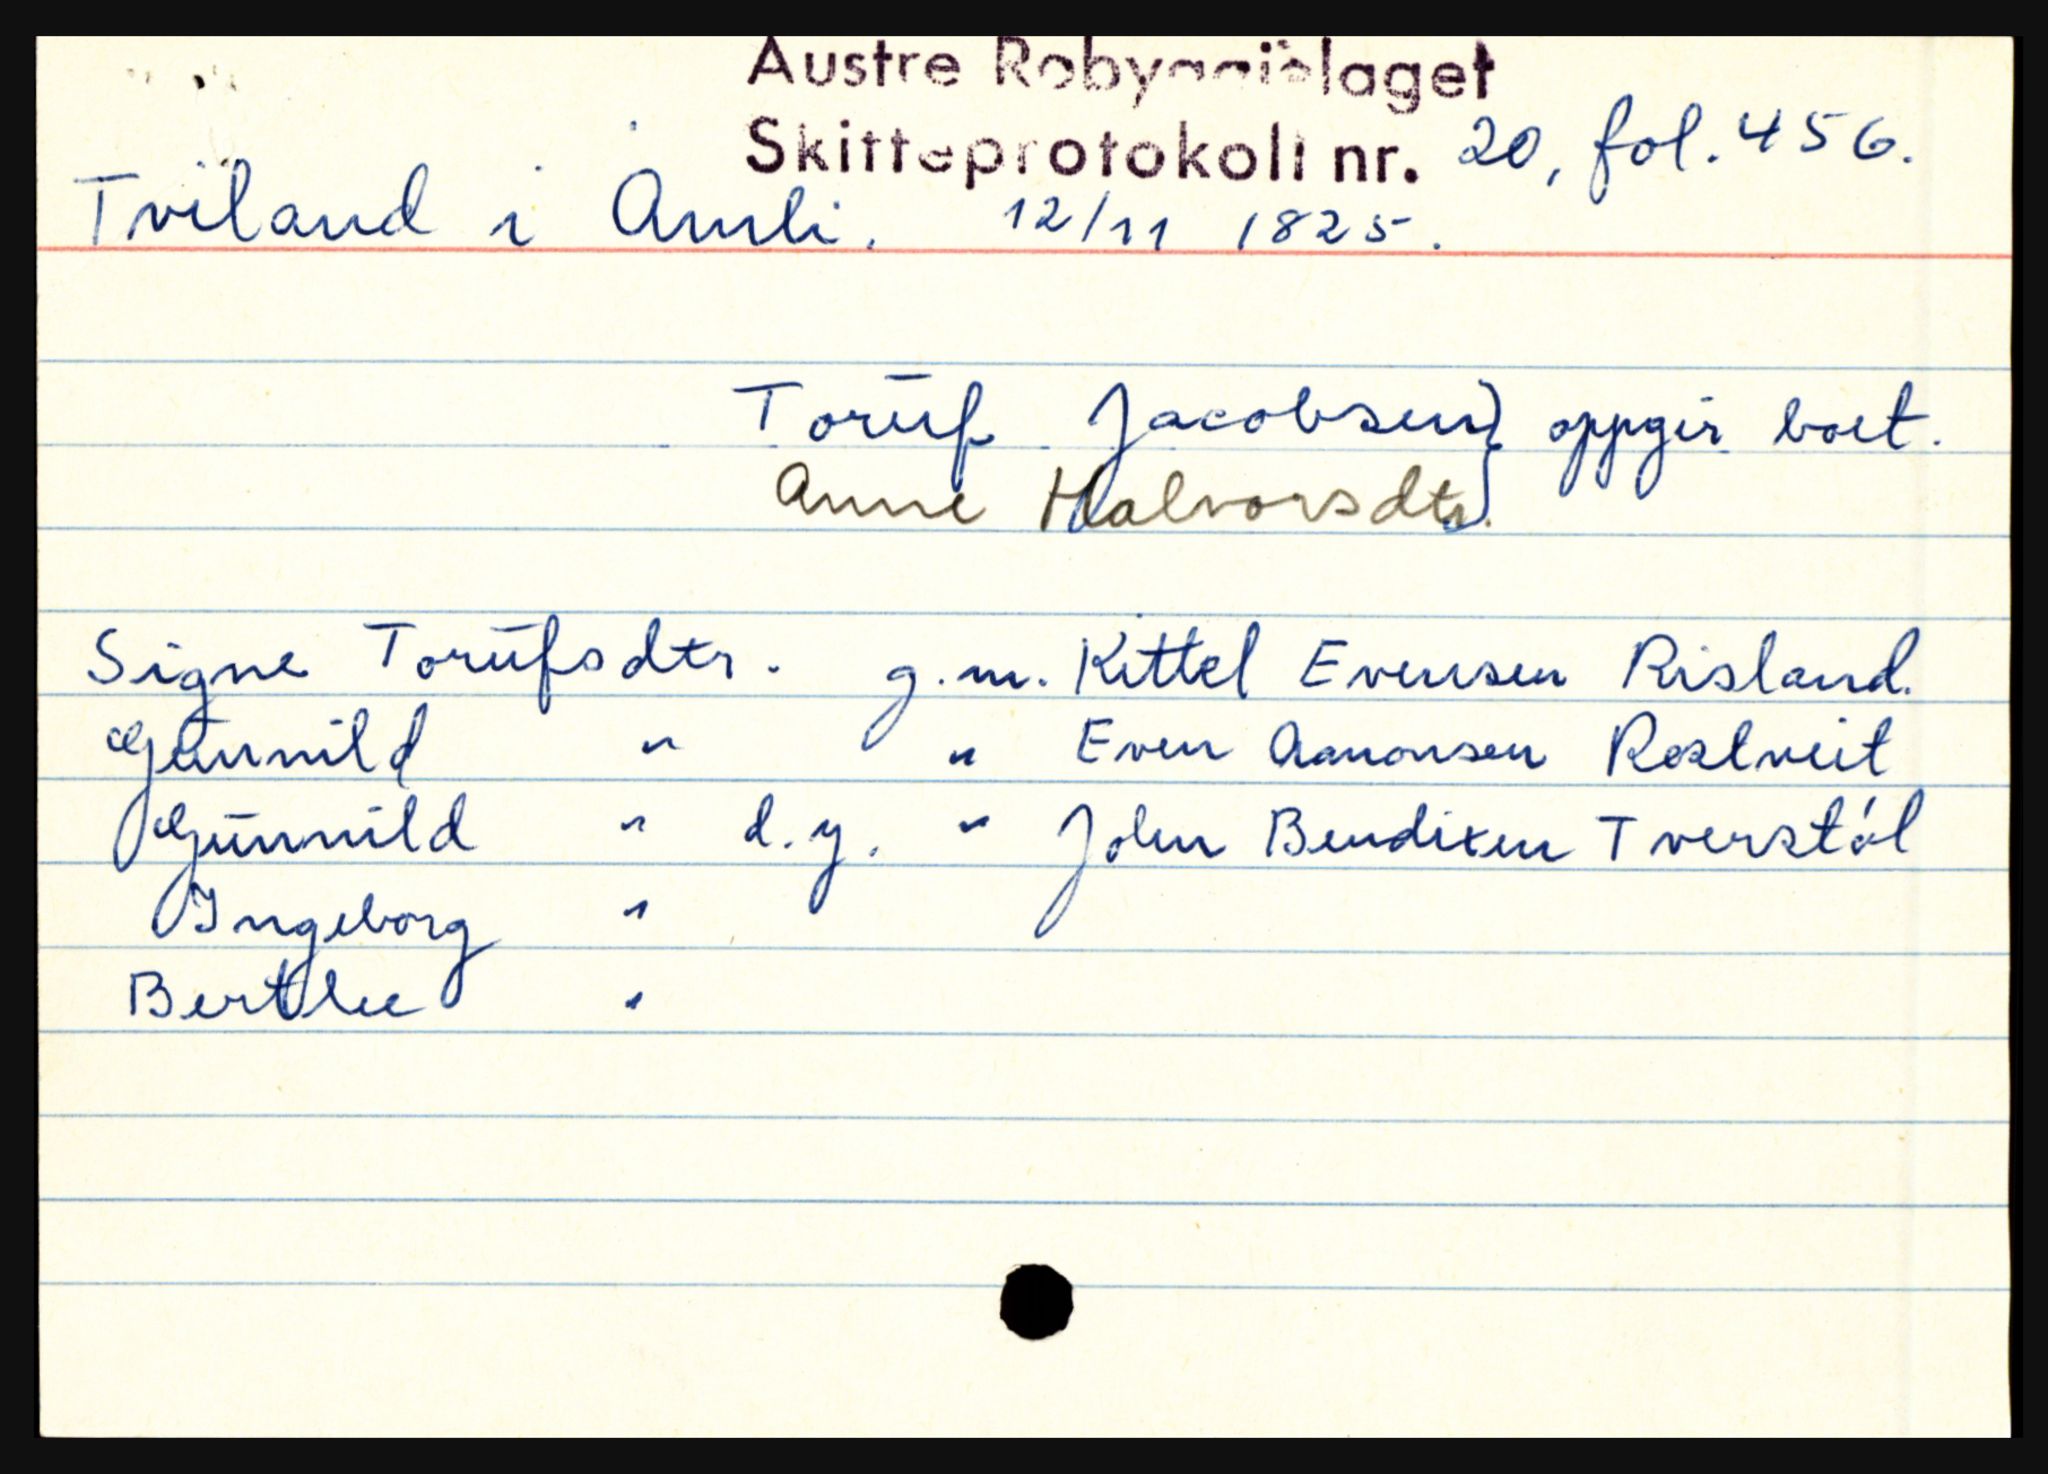 Austre Robyggjelaget
Skifteprotokoll nr. 20, fol. 456.
Tviland i Amli. 12/11 1825.
Toruf Jacobsen } oppgir boet.
Anne Halvorsdtr.
Signe Torufsdtr. g.m. Kittel Evensen Risland.
Gunnild " " Even Aanonsen Rostveit
Gunnild " d.y. " John Bendixen Tverstøl
Ingeborg "
Berthe "